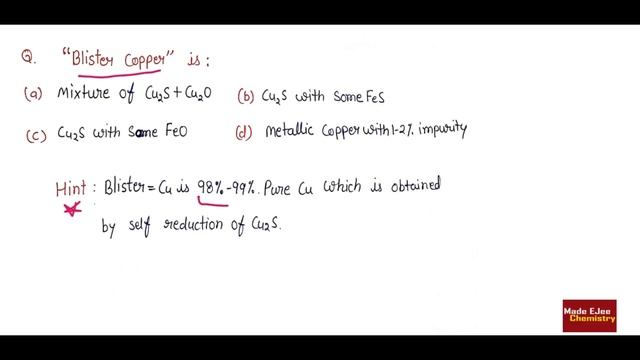 Q. "Blister Copper" is :
(a) Mixture of Cu₂S + Cu₂O (b) Cu₂S with Some FeS
(c) Cu₂S with Some FeO (d) Metallic Copper with 1-2% impurity
Hint : Blister = Cu is 98%-99%. Pure Cu which is obtained
by self reduction of Cu₂S.
Made EJee
Chemistry